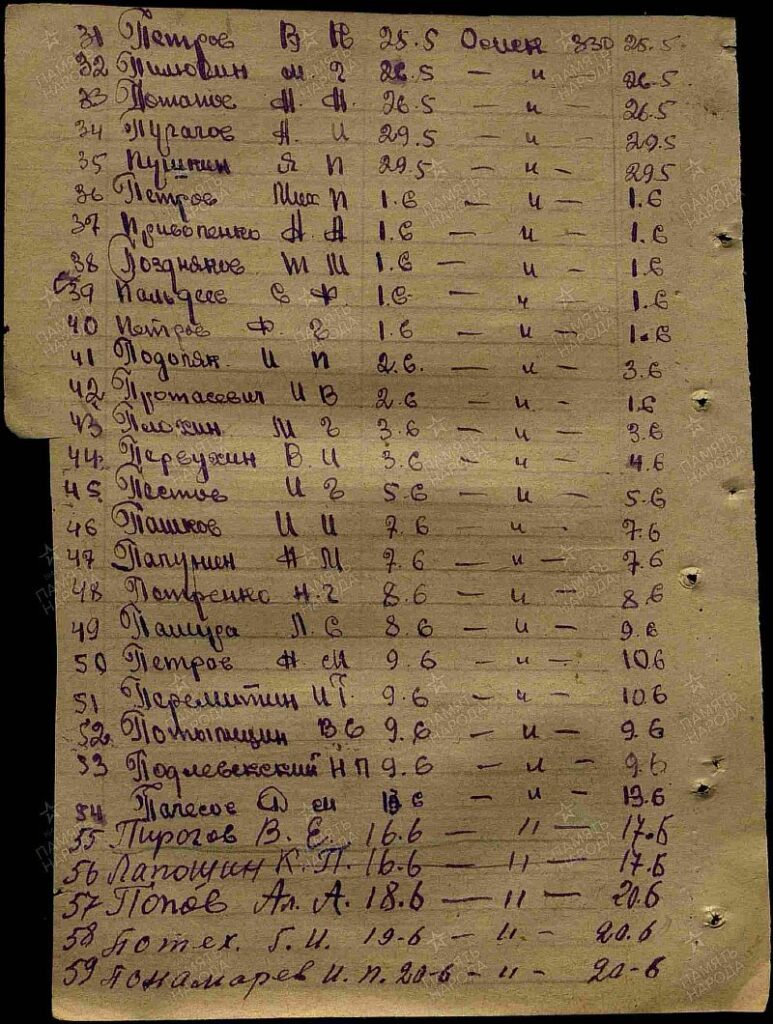 31 Петров В Н 25.5 330 25.5
32 М. Г 26.5 — и — 26.5
33 Потапов Н. Н. 26.5 — и — 26.5
34 Пугачов Н. И 29.5 — и — 29.5
35 Пушкин Я П 29.5 — и — 295
36 Петров Мих П 1.6 — и — 1.6
37 Н А 1.6 — и — 1.6
38 Поздняков М 1.6 — и — 1.6
39 С Ф. 1.6 — и — 1.6
40 Петров Ф. Г 1.6 — и — 1.6
41 Подопян И П 2.6. — и — 3.6
42 Протасевич И В 2.6 — и — 1.6
43 Плохин М Г 3.6 — и — 3.6
44 Первухин В. И 3.6 — и — 4.6
45 Пестов И Г 5.6 — и — 5.6
46 Пашков И И 7.6 — и — 7.6
47 Н М 7.6 — и — 7.6
48 Петренко Н. Г 8.6 — и — 8.6
49 Пашура Л. С 8.6 — и — 9.6
50 Петров Н М 9.6 — и — 10.6
51 И Г. 9.6 — и — 10.6
52 В С 9.6 — и — 9.6
53 Н П 9.6 — и — 9.6
54 — и — 13.6
55 Пирогов В. Е. 16.6 — " — 17.6
56 Лапошин К. П. 16.6 — " — 17.6
57 Попов Ал. А. 18.6 — " — 20.6
58 Потех. Г. И. 19-6 — " — 20.6
59 Понамарев И. П. 20-6 — " — 20-6